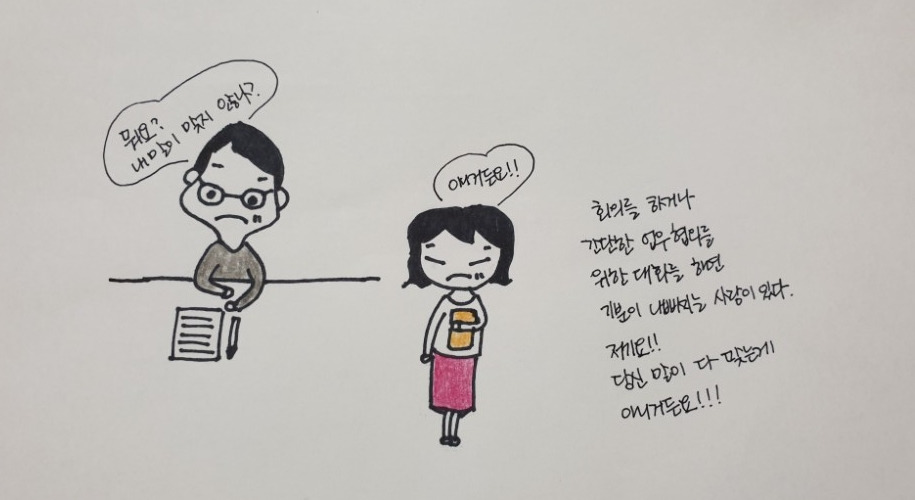 뭐요?
내 말이 맞지 않나?
아니거든요!!
회의를 하거나
간단한 업무협의를
위한 대화를 하면
기분이 나빠지는 사람이 있다.
저기요!!
당신 말이 다 맞는게
아니거든요!!!